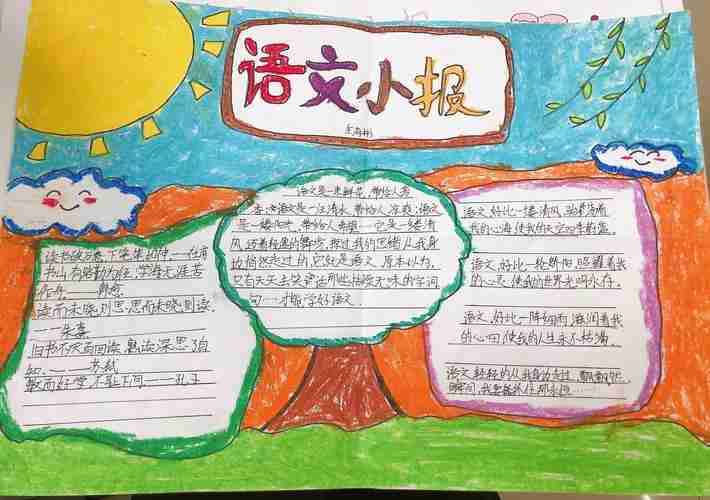 语文小报
语文是一束鲜花,带给人芳
香;语文是一汪清水,带给人凉爽;语文
是一缕阳光,带给人希望……它是一缕清
风,迈着轻盈的舞步,掠过我的思绪从我身
边悄然走过的它就是语文,原本以为,
只有天天去笑背诵那些枯燥无味的字词
句……才能学好语文.
读书破万卷,下笔如神.——杜甫
书山有路勤为径,学海无涯苦
作舟.——韩愈
读而未晓则思,思而未晓则读.
——朱熹
旧书不厌百回读,熟读深思子自
知.——苏轼
敏而好学,不耻下问.——孔子
语文,好比一缕清风,
我的心海,使我的天空四季蔚蓝.
语文,好比一轮骄阳,照耀着我
的心灵,使我的世界光明永存.
语文,好比一阵细雨,滋润着我
的心田,使我的人生永不枯竭.
语文,轻轻的从我身旁走过,
瞬间,我要抓住那永恒……